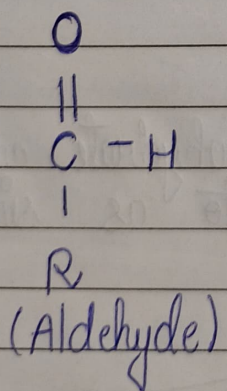 O
||
C - H
|
R
(Aldehyde)